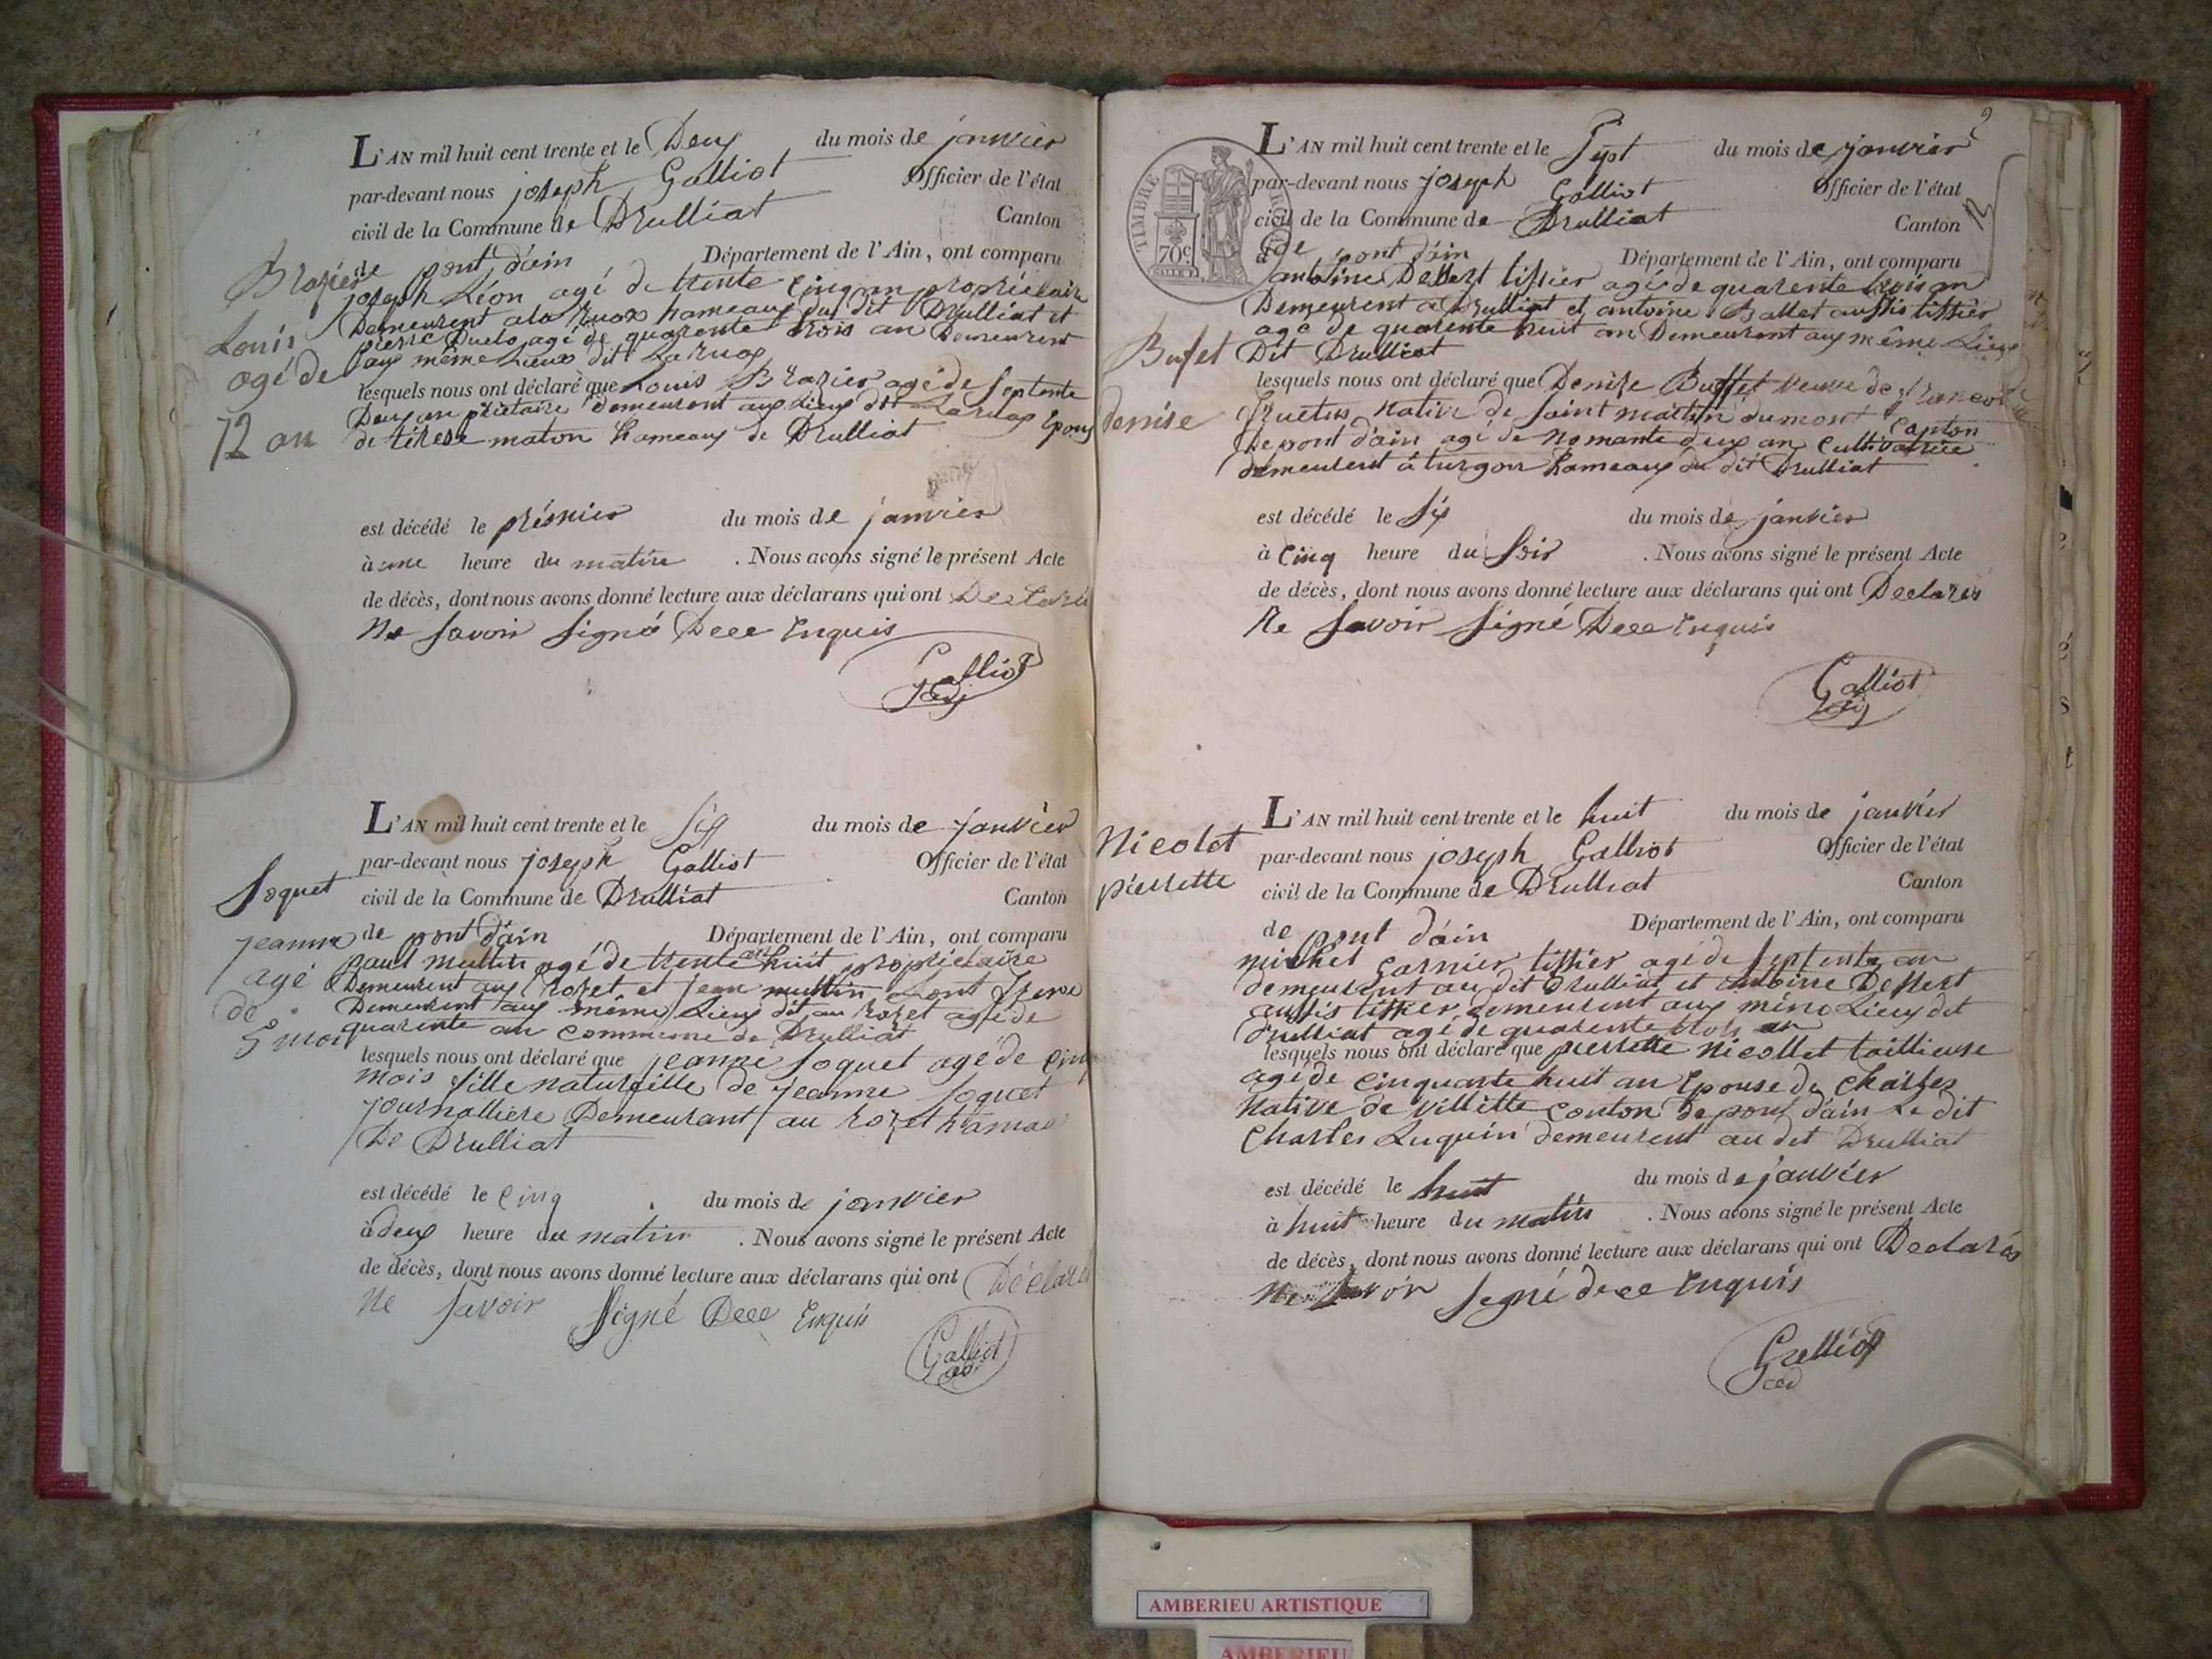 L'AN mil huit cent trente et le Deux du mois de janvier
par-devant nous joseph Galliot Officier de l'état
civil de la Commune de Drulliat Canton
de pont d'ain Département de l'Ain, ont comparu
Brazier
Louis
agé de
72 an
joseph Léon agé de trente cinq an propriétaire
Demeurent a la ruax hameaux du dit Drulliat et
pierre Duclo agé de quarente trois an Demeurent
aux même Lieux dit Laruax
lesquels nous ont déclaré que Louis Brazier agé de septente
Deux an priétaire demeurent aux Lieux dit Laruax Epoux
de térese maton hameaux de Drulliat
est décédé le prémier du mois de janvier
à une heure du matin . Nous avons signé le présent Acte
de décès, dont nous avons donné lecture aux déclarans qui ont Declarés
Ne savoir signé Deee Enquis
Galliot
adj
L'AN mil huit cent trente et le six du mois de janvier
par-devant nous joseph Galliot Officier de l'état
civil de la Commune de Drulliat Canton
de pont d'ain Département de l'Ain, ont comparu
Soquet
jeanne
agé
de
5 moi
paul mullin agé de trente huit propriétaire
Demeurent aux rozet et jean mullin Frere
Demeurent aux même Lieux dit au rozet agé de
quarente an commune de Drulliat
lesquels nous ont déclaré que jeanne soquet agé de cinq
mois fille naturfille de jeanne soquet
journalliere Demeurant au rozet hamaa
De Drulliat
est décédé le cinq du mois de janvier
à deux heure du matin . Nous avons signé le présent Acte
de décès, dont nous avons donné lecture aux déclarans qui ont Déclarés
Ne savoir signé Deee Enquis
Galliot
adj
2
TIMBRE
70c
L'AN mil huit cent trente et le sept du mois de janvier
par-devant nous joseph Galliot Officier de l'état
civil de la Commune de Drulliat Canton
de pont d'ain Département de l'Ain, ont comparu
Bufet
denise
antoine Debert tissier agé de quarente trois an
Demeurent a Drulliat et antoine Ballet aussis tissier
agé de quarente huit an Demeurant aux même Lieux
Dit Drulliat
lesquels nous ont déclaré que Denise Buffet veuve de francoi
native de saint martin dumont Canton
De pont d'ain agé de nomante deux an Cultivatrice
demeurent à turgon hameaux du dit Drulliat
est décédé le six du mois de janvier
à cinq heure du soir . Nous avons signé le présent Acte
de décès, dont nous avons donné lecture aux déclarans qui ont Declarés
Ne savoir signé Deee Enquis
Galliot
adj
L'AN mil huit cent trente et le huit du mois de janvier
par-devant nous joseph Galliot Officier de l'état
civil de la Commune de Drulliat Canton
de pont d'ain Département de l'Ain, ont comparu
Nicolet
pierrette
michel Garnier tissier agé de septente an
demeurant au dit Drulliat et antoine
aussis tissier demeurent aux même Lieux dit
Drulliat agé de quarente trois an
lesquels nous ont déclaré que pierrette Nicollet taillieuse
agé de cinquante huit an Epouse de charles
native de Villette conton de pont d'ain Le dit
Charles Luquin demeurent au dit Drulliat
est décédé le huit du mois de janvier
à huit heure du matin . Nous avons signé le présent Acte
de décès, dont nous avons donné lecture aux déclarans qui ont Declarés
Ne savoir segné deee Enquis
Galliot
adj
AMBERIEU ARTISTIQUE
AMBERIEU